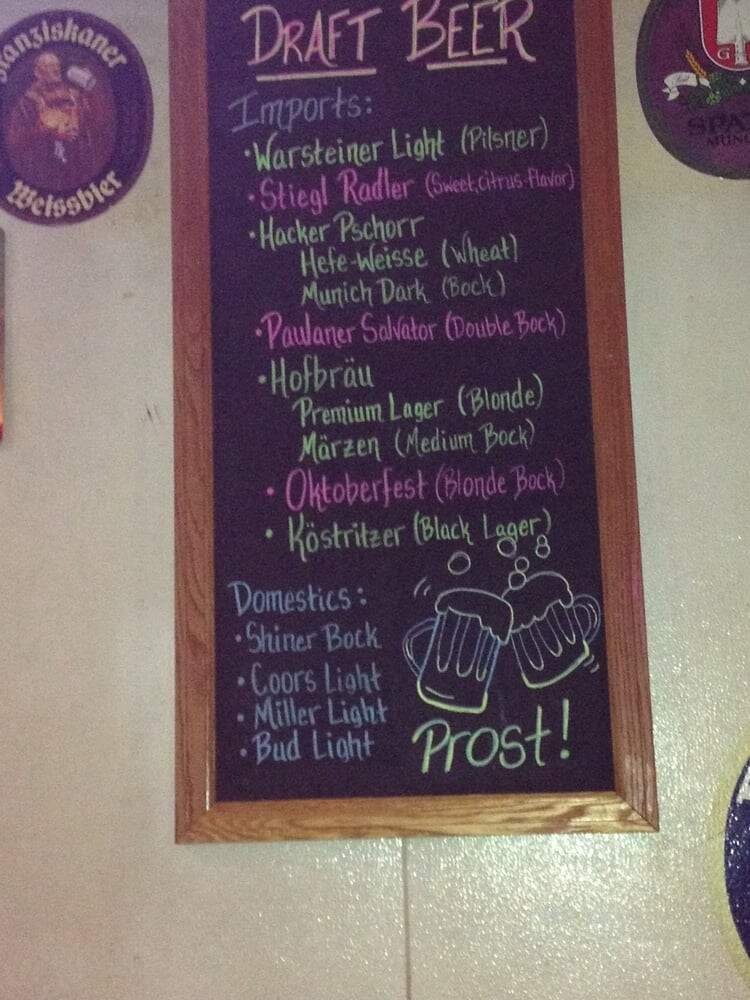 DRAFT BEER
Imports:
• Warsteiner Light (Pilsner)
• Stiegl Radler (Sweet, citrus-flavor)
• Hacker Pschorr
Hefe-Weisse (Wheat)
Munich Dark (Bock)
• Paulaner Salvator (Double Bock)
• Hofbräu
Premium Lager (Blonde)
Märzen (Medium Bock)
• Oktoberfest (Blonde Bock)
• Köstritzer (Black Lager)
Domestics:
• Shiner Bock
• Coors Light
• Miller Light
• Bud Light
Prost!
Weissbier
G